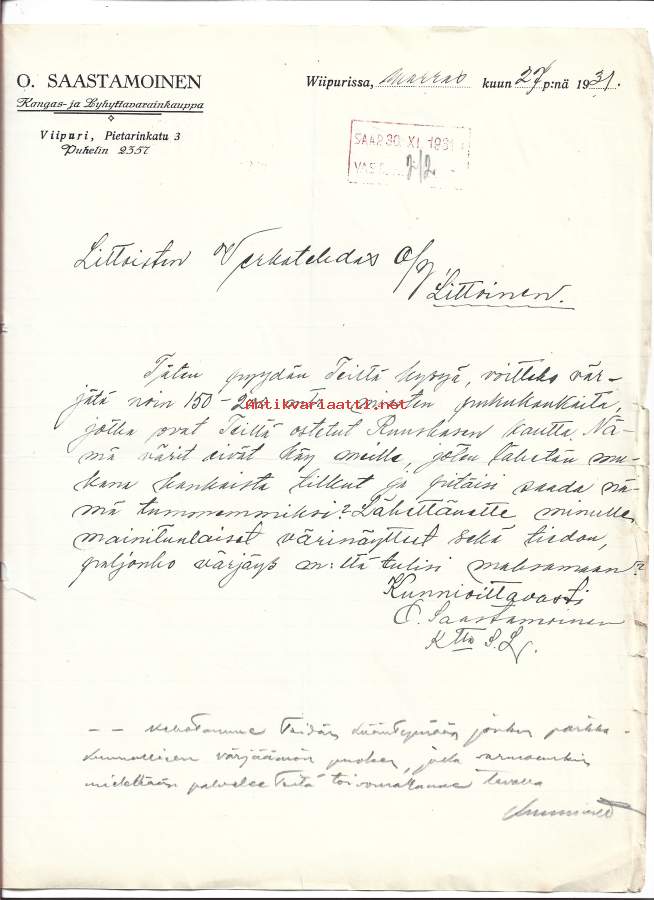 O. SAASTAMOINEN
Kangas- ja Lyhyttavarainkauppa
Viipuri, Pietarinkatu 3
Puhelin 2357
Wiipurissa, marras kuun 27 p:nä 1931.
SAAP. 30. XI. 1931
VAST. 2/12 -
Littoisten Verkatehdas O/Y,
Littoinen.
Täten pyydän Teiltä kysyä, voitteko vär-
jätä noin 150-200 mtr. pukukankaita,
jotka ovat Teiltä ostetut Ruuskasen kautta. Nä-
mä värit eivät käy meille, joten lähetän mu-
kana kankaista tilkut ja pitäisi saada nä-
mä tummemmiksi? Lähettänette minulle
mainitunlaiset värinäytteet sekä tiedon,
paljonko värjäys m:ltä tulisi maksamaan?
Kunnioittavasti
O. Saastamoinen
Antikvariaatti.net
- - kehotamme Teidän kääntymään jonkun paikka-
kunnallisen värjäämön puoleen, joka varmaankin
mielellään palvelee Teitä toivomallanne tavalla